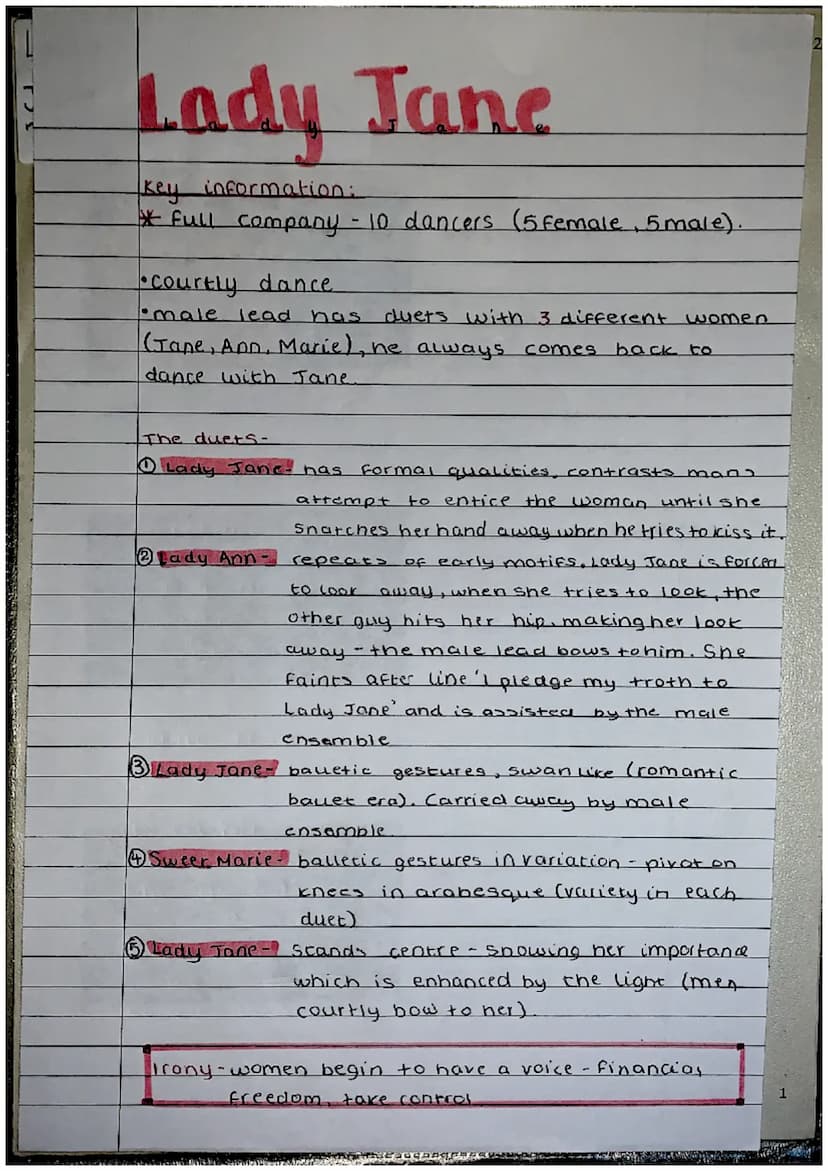 Lady Jane
Lady Jane
Key information:
* Full company - 10 dancers (5 female, 5 male).
•courtly dance
•male lead has duets with 3 different women
(Jane, Ann, Marie), he always comes back to
dance with Jane.
The duets-
① Lady Jane- has formal qualities, contrasts mans
attempt to entice the woman until she
snatches her hand away when he tries to kiss it.
② Lady Ann- repeats of early motifs. Lady Jane is forced
to look away, when she tries to look, the
other guy hits her hip, making her look
away - the male lead bows to him. She
faints after line 'I pledge my troth to
Lady Jane' and is assisted by the male
ensemble
③ Lady Jane- balletic gestures, swan like (romantic
ballet era). Carried away by male
ensemble.
④ Sweet Marie- balletic gestures in variation - pivot on
knees in arabesque (variety in each
duet)
⑤ Lady Jane- stands centre - showing her importance
which is enhanced by the light (men
courtly bow to her).
Irony - women begin to have a voice - financial
freedom, take control
1
2